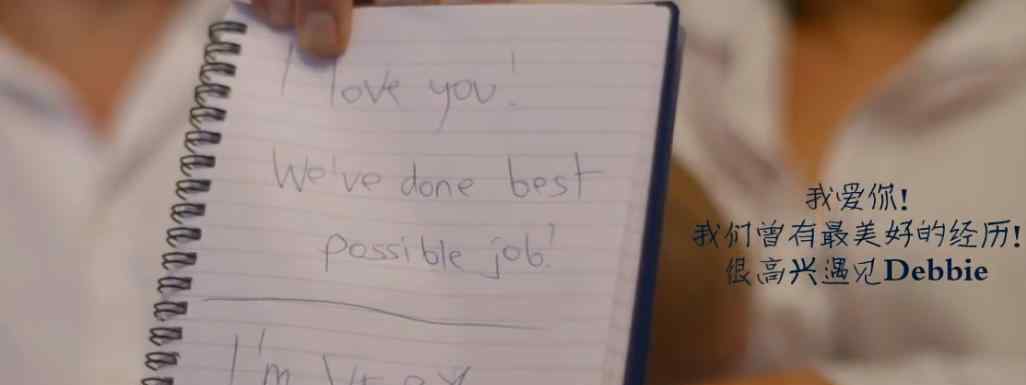 I love you!
We've done best
possible job!
I'm
我爱你!
我们曾有最美好的经历!
很高兴遇见Debbie